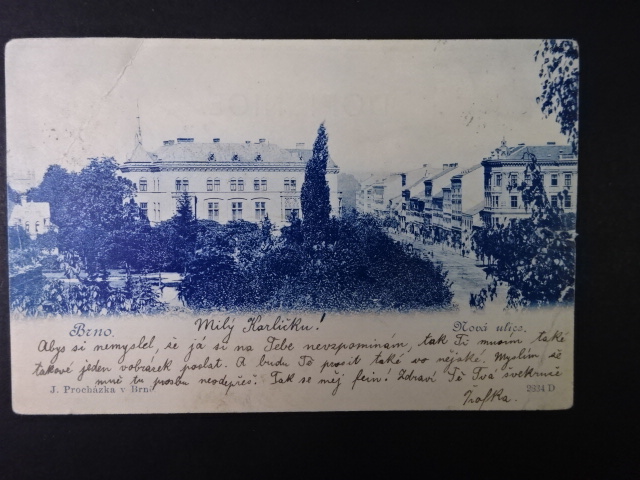 Brno. Milý Karlíčku! Nová ulice.
Abys si nemyslel, že já si na Tebe nevzpomínám, tak Ti musím také
takové jeden vobrázek poslat. A budu Tě prosit také vo nějské. Myslím, že
mně tu prosbu neodepřeš. Tak se měj fein. Zdraví Tě Tvá švekruše
J. Procházka v Brně 2924 D
Žofka.